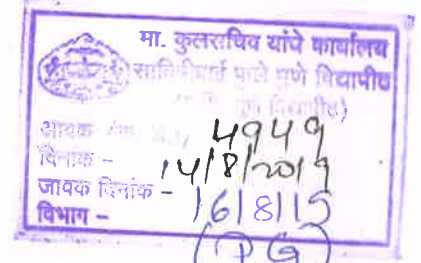 मा. कुलसचिव यांचे कार्यालय
सावित्रीबाई फुले पुणे विद्यापीठ
पुणे विद्यापीठ)
आवक 4949
दिनांक – 14/8/2019
जावक दिनांक – 16/8/15
विभाग –
(PG)